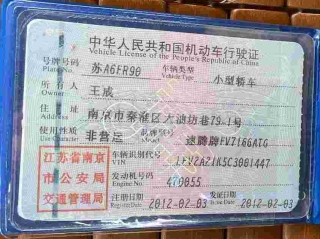 中华人民共和国机动车行驶证
Vehicle License of the People's Republic of China
号牌号码 苏A6FR90 车辆类型 小型轿车
Plate No. Vehicle Type
所有人 王成
Owner
住址 南京市秦淮区大油坊巷79-1号
Address
使用性质 非营运 品牌型号 速腾牌FV7166ATG
江苏省南京
市公安局
交通管理局
车辆识别代号 LFV2A21K5C3081447
VIN
发动机号码 470855
Engine No.
注册日期 2012-02-03 发证日期 2012-02-03
Register Date Issue Date